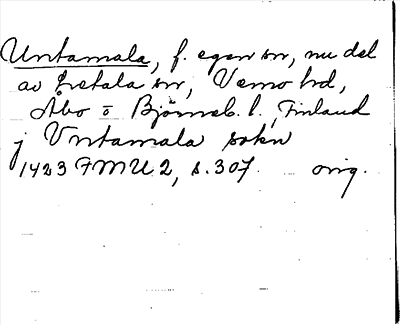 Untamala, f. egen sn, nu del
av Letala sn, Vemo hd,
Åbo o Björneb. l., Finland
j Vntamala sokn
1423 FMU 2, s. 307. orig.